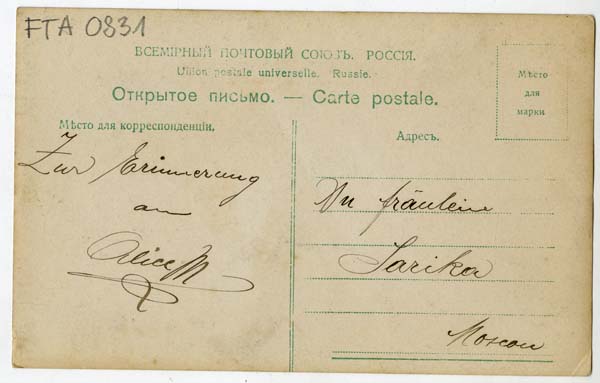 FTA 0831
ВСЕМІРНЫЙ ПОЧТОВЫЙ СОЮЗЪ. РОССІЯ.
Union postale universelle. Russie.
Открытое письмо. — Carte postale.
Мѣсто
для
марки
Мѣсто для корреспонденціи.
Zur Erinnerung
an
Alice M
Адресъ.
An fräulein
Sarika
Moscou